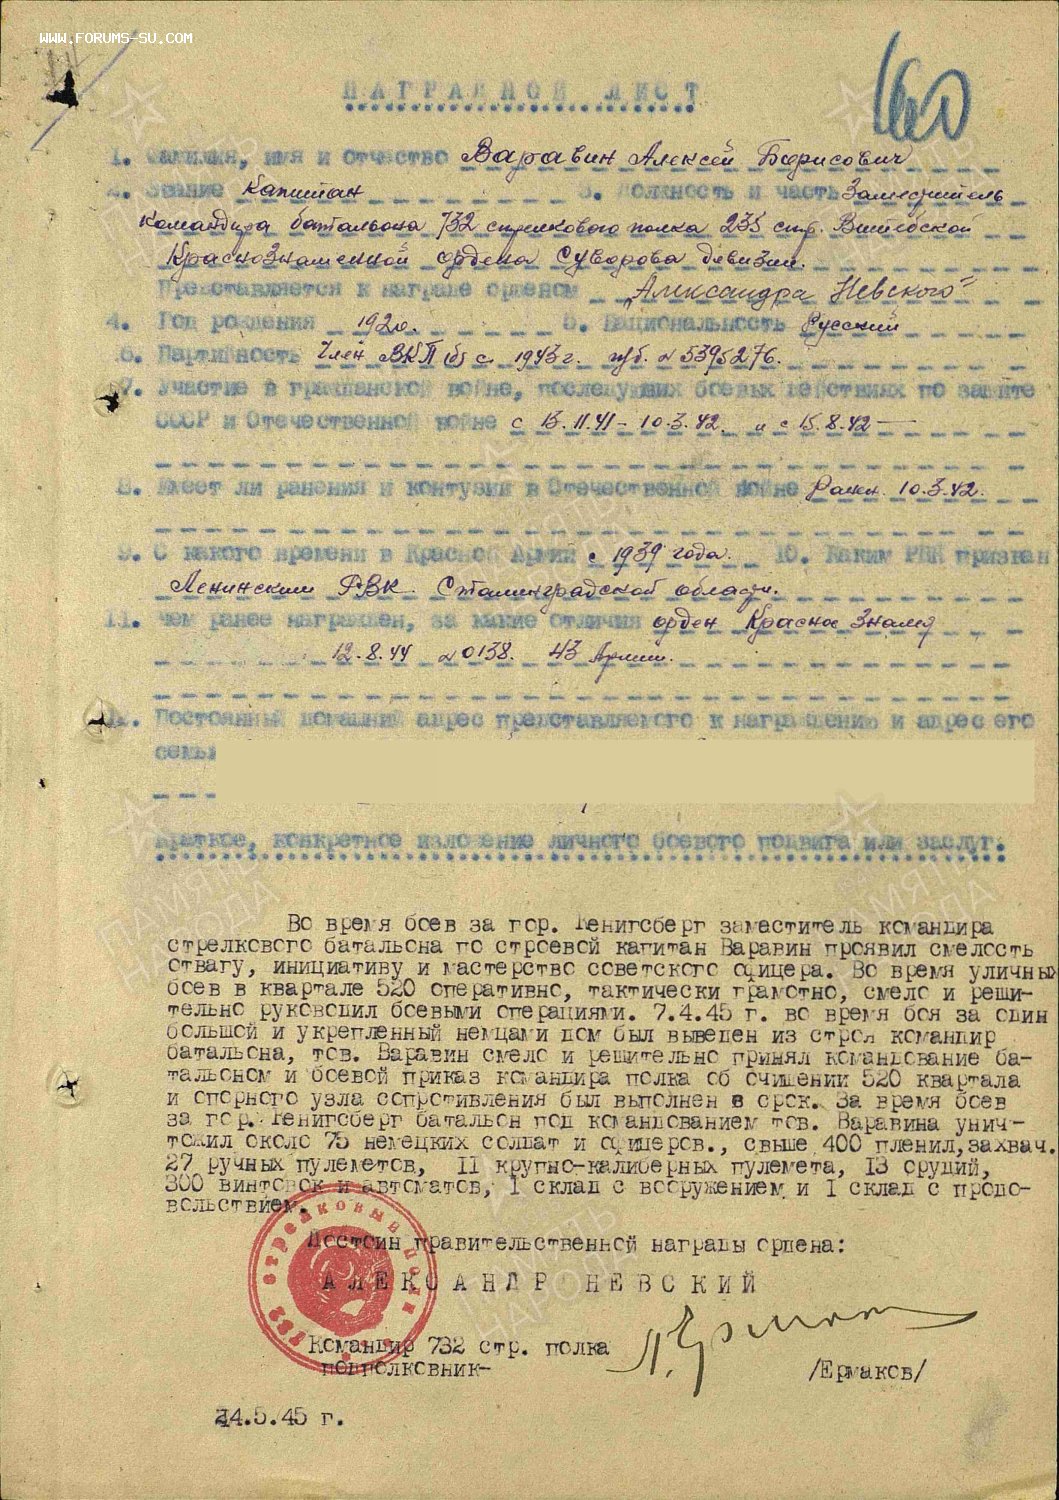 WWW.FORUMS-SU.COM
160
НАГРАДНОЙ ЛИСТ
1. Фамилия, имя и отчество Варавин Алексей Борисович
2. Звание Капитан 3. Должность и часть Заместитель
командира батальона 732 стрелкового полка 235 стр. Витебской
Краснознаменной ордена Суворова дивизии.
Представляется к награде орденом „Александра Невского"
4. Год рождения 1920. 5. Национальность Русский
6. Партийность Член ВКП(б) с 1943 г. п/б. № 5395276.
7. Участие в гражданской войне, последующих боевых действиях по защите
СССР и Отечественной войне с 13.11.41 - 10.3.42 и с 15.8.42 —
8. Имеет ли ранения и контузии в Отечественной войне Ранен 10.3.42.
9. С какого времени в Красной Армии с 1939 года. 10. Каким РВК призван
Ленинским РВК Сталинградской области.
11. Чем ранее награжден, за какие отличия орден Красное Знамя
12.8.44 № 0138. 43 Армии.
12. Постоянный домашний адрес представляемого к награждению и адрес его
семьи
Краткое, конкретное изложение личного боевого подвига или заслуг.
Во время боев за гор. Кенигсберг заместитель командира
стрелкового батальона по строевой капитан Варавин проявил смелость
отвагу, инициативу и мастерство советского офицера. Во время уличных
боев в квартале 520 оперативно, тактически грамотно, смело и реши-
тельно руководил боевыми операциями. 7.4.45 г. во время боя за один
большой и укрепленный немцами дом был выведен из строя командир
батальона, тов. Варавин смело и решительно принял командование ба-
тальоном и боевой приказ командира полка об очищении 520 квартала
и опорного узла сопротивления был выполнен в срок. За время боев
за гор. Кенигсберг батальон под командованием тов. Варавина унич-
тожил около 75 немецких солдат и офицеров., свыше 400 пленил, захвач.
27 ручных пулеметов, 11 крупно-калиберных пулемета, 13 орудий,
300 винтовок и автоматов, 1 склад с вооружением и 1 склад с продо-
вольствием.
Достоин правительственной награды ордена:
АЛЕКСАНДР НЕВСКИЙ
732 стрелковый полк
Командир 732 стр. полка
подполковник- /Ермаков/
14.5.45 г.
ПАМЯТЬ НАРОДА